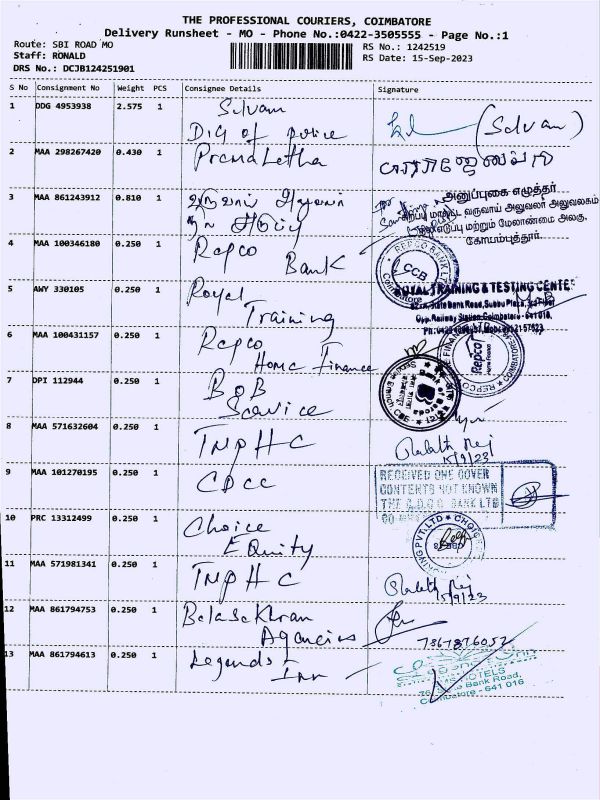 THE PROFESSIONAL COURIERS, COIMBATORE
Delivery Runsheet - MO - Phone No.:0422-3505555 - Page No.:1
Route: SBI ROAD MO
RS No.: 1242519
Staff: RONALD
RS Date: 15-Sep-2023
DRS No.: DCJB124251901
S No Consignment No Weight PCS Consignee Details Signature
1 DDG 4953938 2.575 1 Silvam
DIG of police (Selvam)
2 MAA 298267420 0.430 1 PremaLetha
3 MAA 861243912 0.810 1
அனுப்புகை எழுத்தர்
மாவட்ட வருவாய் அலுவலர் அலுவலகம்
மற்றும் மேலாண்மை அலகு,
கோயம்புத்தூர்.
4 MAA 100346180 0.250 1 Repco
Bank
REPCO BANK LTD
CCB
Coimbatore
5 AWY 330105 0.250 1 Royal
Training
ROYAL TRAINING & TESTING CENTE
State Bank Road, Subbu Plaza,
Opp. Railway Station, Coimbatore - 641 018.
6 MAA 100431157 0.250 1 Repco
Home Finance
Repco
7 DPI 112944 0.250 1 BOB
Service
8 MAA 571632604 0.250 1 TNPHC
15/9/23
9 MAA 101270195 0.250 1 CDCC
RECEIVED ONE COVER
CONTENTS NOT KNOWN
THE C.D.C.C. BANK LTD
10 PRC 13312499 0.250 1 Choice
Equity
11 MAA 571981341 0.250 1 TNPHC
15/9/23
12 MAA 861794753 0.250 1 Balasekhran
Agencies
7367876052
13 MAA 861794613 0.250 1 Legends
Inn
HOTELS
Bank Road,
Coimbatore - 641 018